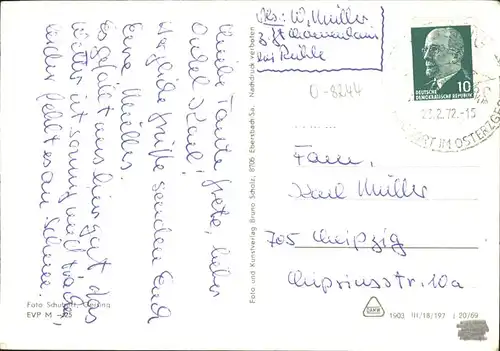 Abs.: W. Müller
z. Zt.
zur Mühle
0-8244
DEUTSCHE
DEMOKRATISCHE REPUBLIK
10
23.2.72.-15
ORT IM OSTERZGEB
Liebe Tante Grete, lieber
Onkel Karl!
Herzliche Grüße senden Euch
Eure Müllers.
Es gefällt uns hier gut. Das
Wetter ist sonnig und trocken,
leider fehlt es an Schnee.
Foto und Kunstverlag Bruno Scholz, 8705 Ebersbach-Sa. Nachdruck verboten
Fam.
Karl Müller
705 Leipzig
Cichoriusstr. 10a
Foto Schubert, Geising
EVP M
1903 III/18/197 J 20/69